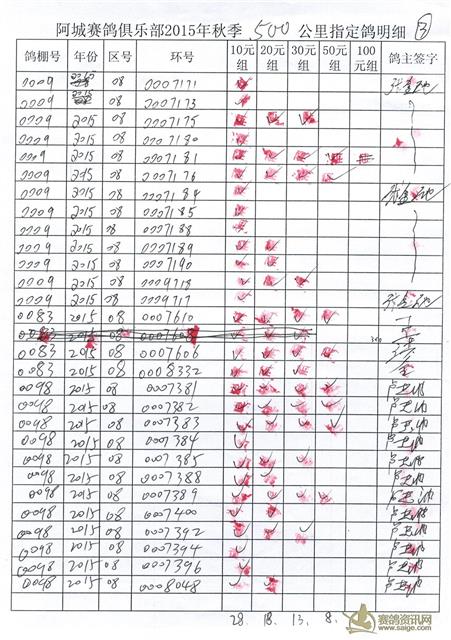 阿城赛鸽俱乐部2015年秋季 500 公里指定鸽明细 ③
鸽棚号 年份 区号 环号 10元组 20元组 30元组 50元组 100元组 鸽主签字
0009 08 0007171
0009 08 0007173
0009 2015 08 0007175
0009 2015 08 0007180
0009 2015 08 0007181
0009 2015 08 0007176
0009 2015 08 0007184
0009 2015 08 0007185
0009 2015 08 0007188
0009 2015 08 0007189
0009 2015 08 0007190
0009 2015 08
0009 2015 08
0083 2015 08 0007610
0083 2015 08
0083 2015 08 0007606
0083 2015 08 0008332
0098 2015 08 0007381
0098 2015 08 0007382
0098 2015 08 0007383
0098 2015 08 0007384
0098 2015 08 0007385
0098 2015 08 0007388
0098 2015 08 0007389
0098 2015 08 0007400
0098 2015 08 0007392
0098 2015 08 0007394
0098 2015 08 0007396
0098 2015 08 0008048
28. 18. 13. 8.
赛鸽资讯网
www.saige.com